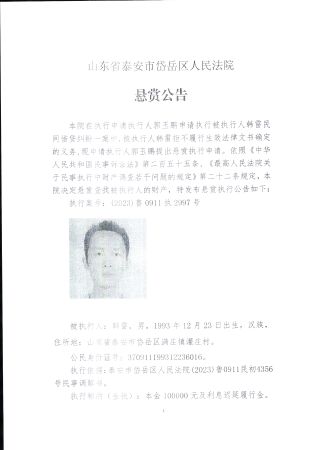 山东省泰安市岱岳区人民法院
悬赏公告
本院在执行申请执行人郭玉鹏申请执行被执行人韩雷民
间借贷纠纷一案中，被执行人韩雷拒不履行生效法律文书确定
的义务，现申请执行人郭玉鹏提出悬赏执行申请。依照《中华
人民共和国民事诉讼法》第二百五十五条、《最高人民法院关
于民事执行中财产调查若干问题的规定》第二十二条规定，本
院决定悬赏查找被执行人的财产，特发布悬赏执行公告如下：
执行案号：(2023)鲁0911执2997号
被执行人：韩雷，男，1993年12月23日出生，汉族，
住所地：山东省泰安市岱岳区满庄镇 庄村。
公民身份证号：370911199312236016。
执行依据：泰安市岱岳区人民法院(2023)鲁0911民初4356
号民事调解书。
执行标的(金钱)：本金100000元及利息迟延履行金。
1